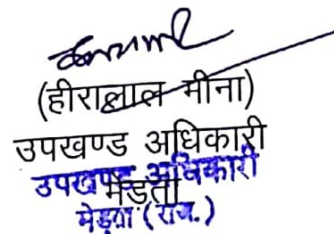 (हीरालाल मीना)
उपखण्ड अधिकारी
मेड़ता
उपखण्ड अधिकारी
मेड़ता (राज.)